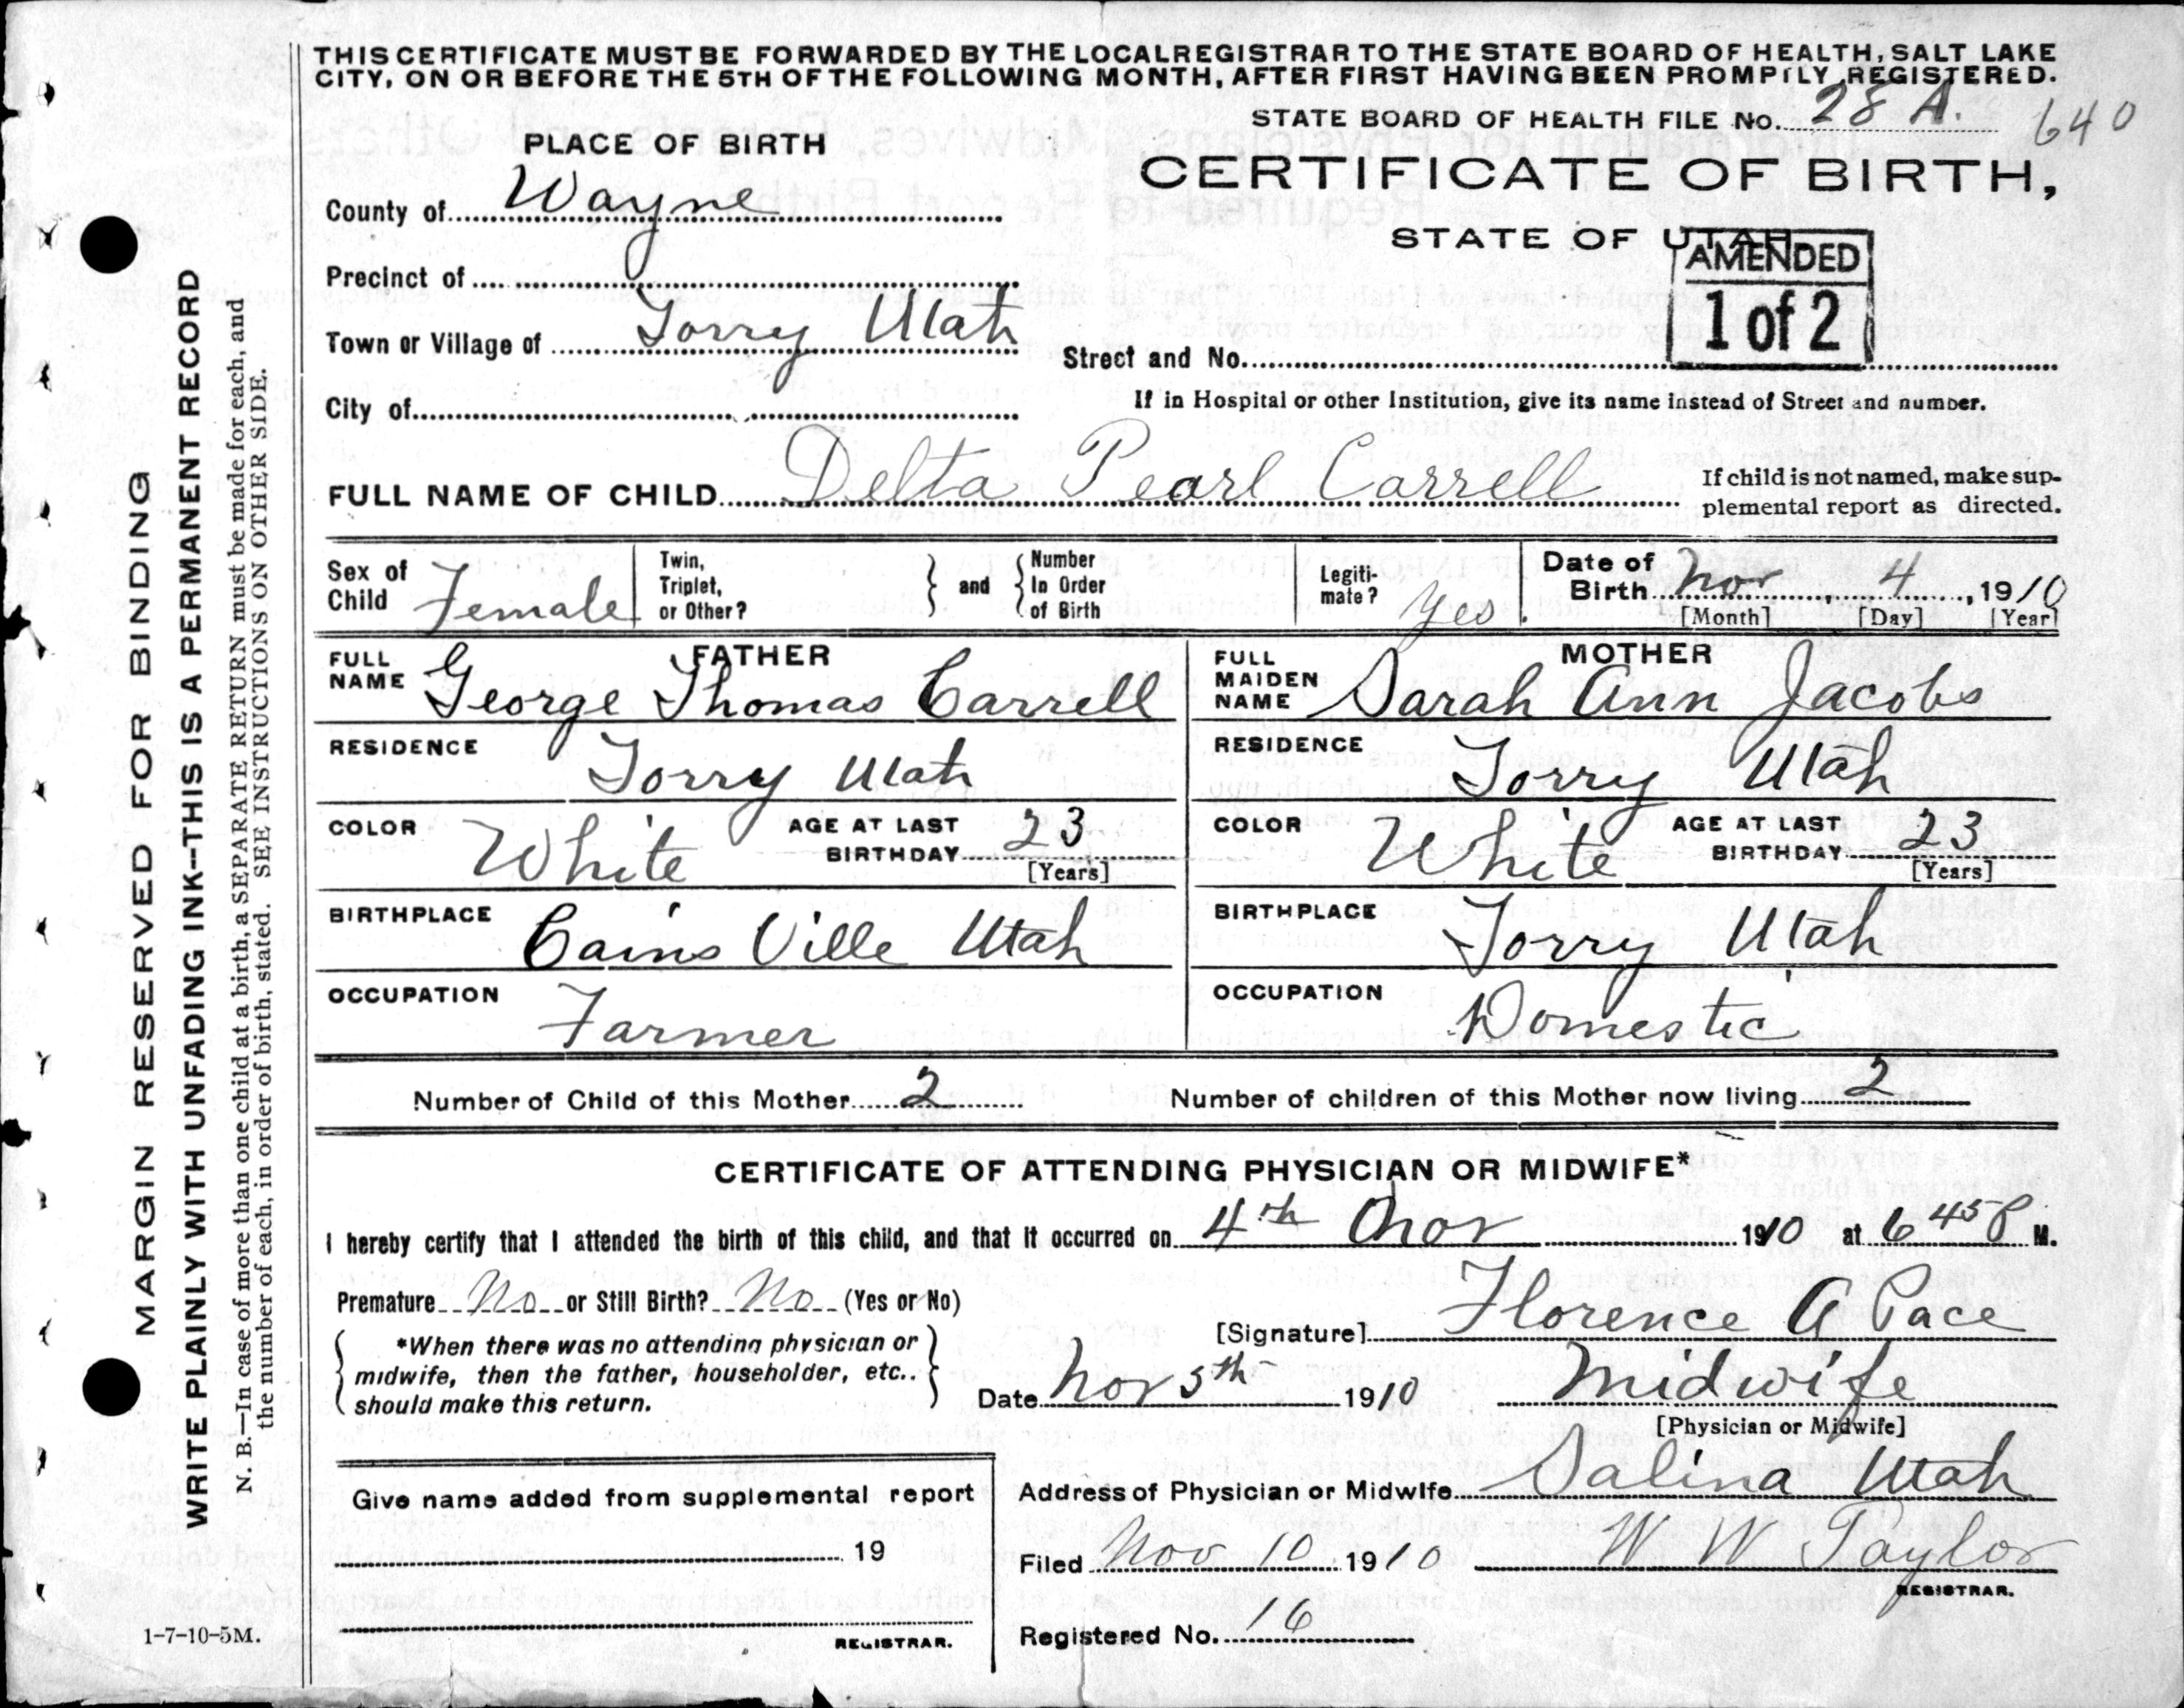 THIS CERTIFICATE MUST BE FORWARDED BY THE LOCAL REGISTRAR TO THE STATE BOARD OF HEALTH, SALT LAKE
CITY, ON OR BEFORE THE 5TH OF THE FOLLOWING MONTH, AFTER FIRST HAVING BEEN PROMPTLY REGISTERED.
STATE BOARD OF HEALTH FILE No. 28 A. 640
PLACE OF BIRTH
CERTIFICATE OF BIRTH,
County of Wayne
STATE OF UTAH
AMENDED
1 of 2
Precinct of
Town or Village of Torry Utah
Street and No.
City of
If in Hospital or other Institution, give its name instead of Street and number.
FULL NAME OF CHILD Delta Pearl Carrell
If child is not named, make sup-
plemental report as directed.
Sex of Child Female
Twin, Triplet, or Other?
and
Number In Order of Birth
Legiti-mate? Yes.
Date of Birth Nov 4, 1910
[Month] [Day] [Year]
FATHER
FULL NAME George Thomas Carrell
MOTHER
FULL MAIDEN NAME Sarah Ann Jacobs
RESIDENCE Torry Utah
RESIDENCE Torry Utah
COLOR White AGE AT LAST BIRTHDAY 23 [Years]
COLOR White AGE AT LAST BIRTHDAY 23 [Years]
BIRTHPLACE Cains Ville Utah
BIRTHPLACE Torry Utah
OCCUPATION Farmer
OCCUPATION Domestic
Number of Child of this Mother 2
Number of children of this Mother now living 2
CERTIFICATE OF ATTENDING PHYSICIAN OR MIDWIFE*
I hereby certify that I attended the birth of this child, and that it occurred on 4th Nov 1910 at 6 45 P M.
Premature No or Still Birth? No (Yes or No)
[Signature] Florence A Pace
*When there was no attending physician or
midwife, then the father, householder, etc..
should make this return.
Date Nov 5th 1910
Midwife
[Physician or Midwife]
Give name added from supplemental report
Address of Physician or Midwife Salina Utah
19
Filed Nov 10 1910 W W Taylor
REGISTRAR.
REGISTRAR.
Registered No. 16
MARGIN RESERVED FOR BINDING
WRITE PLAINLY WITH UNFADING INK--THIS IS A PERMANENT RECORD
N. B.—In case of more than one child at a birth, a SEPARATE RETURN must be made for each, and
the number of each, in order of birth, stated. SEE INSTRUCTIONS ON OTHER SIDE.
1-7-10-5M.